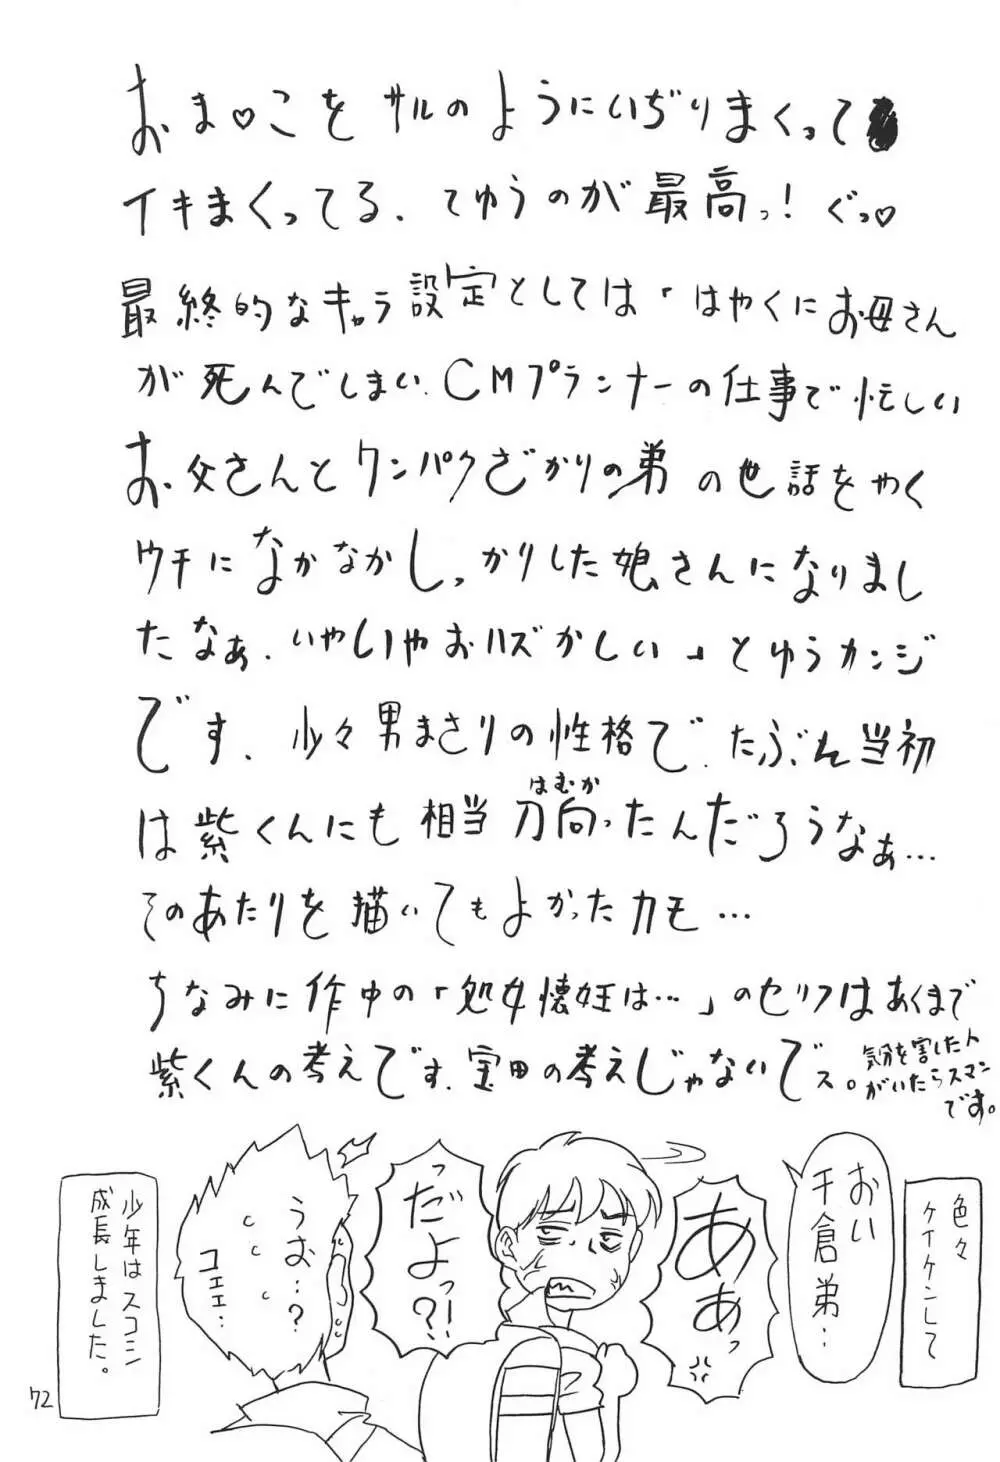 最終的なキャラ設定としては「はやくにお母さん
が死んでしまい、CMプランナーの仕事で忙しい
お父さんとワンパクざかりの弟の世話をやく
ウチになかなかしっかりした娘さんになりまし
たなぁ、いやしいやおハズかしい」とゆうカンジ
です、少々男まさりの性格で、たぶん当初
は紫くんにも相当刀向ったんだろうなぁ…
はむか
そのあたりを描いてもよかったカモ…
ちなみに作中の「処女懐妊は…」のセリフはあくまで
紫くんの考えです、宝田の考えじゃないでス。
気分を害した人
がいたらスマン
です。
色々
ケイケンして
おい
千倉弟…
あぁっ
っだよっ!?
うお…?
コエエ…
少年はスコシ
成長しました。
72